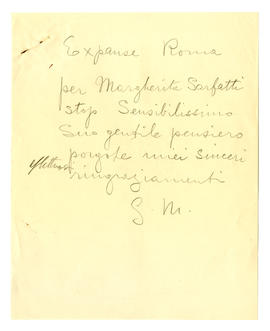 Expanse Roma
per Margherita Sarfatti
Stop Sensibilissimo
Suo gentile pensiero
porgole miei sinceri
ringraziamenti
G. M.